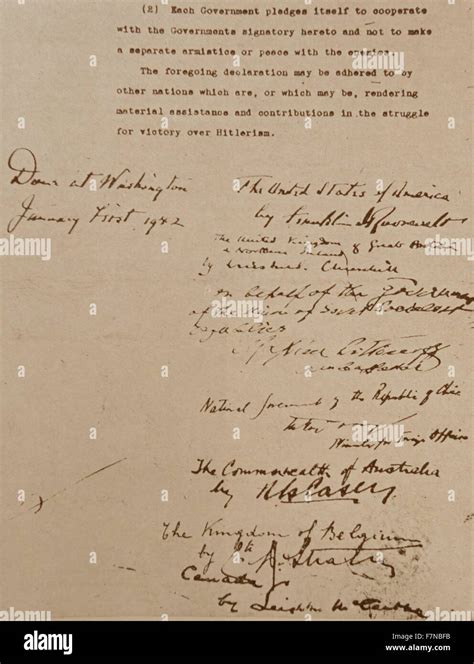 (2) Each Government pledges itself to cooperate
with the Governments signatory hereto and not to make
a separate armistice or peace with the enemies.
The foregoing declaration may be adhered to by
other nations which are, or which may be, rendering
material assistance and contributions in the struggle
for victory over Hitlerism.
Done at Washington
January First 1942
The United States of America
by Franklin D Roosevelt
The United Kingdom of Great Britain
& Northern Ireland
by Winston S. Churchill
on behalf of the Government
of the Union of Soviet Socialist
Republics
Maxim Litvinoff
Ambassador
National Government of the Republic of China
Minister for Foreign Affairs
The Commonwealth of Australia
by R G Casey
The Kingdom of Belgium
by
Canada
by Leighton McCarthy
alamy
alamy
Image ID: F7NBFB
www.alamy.com